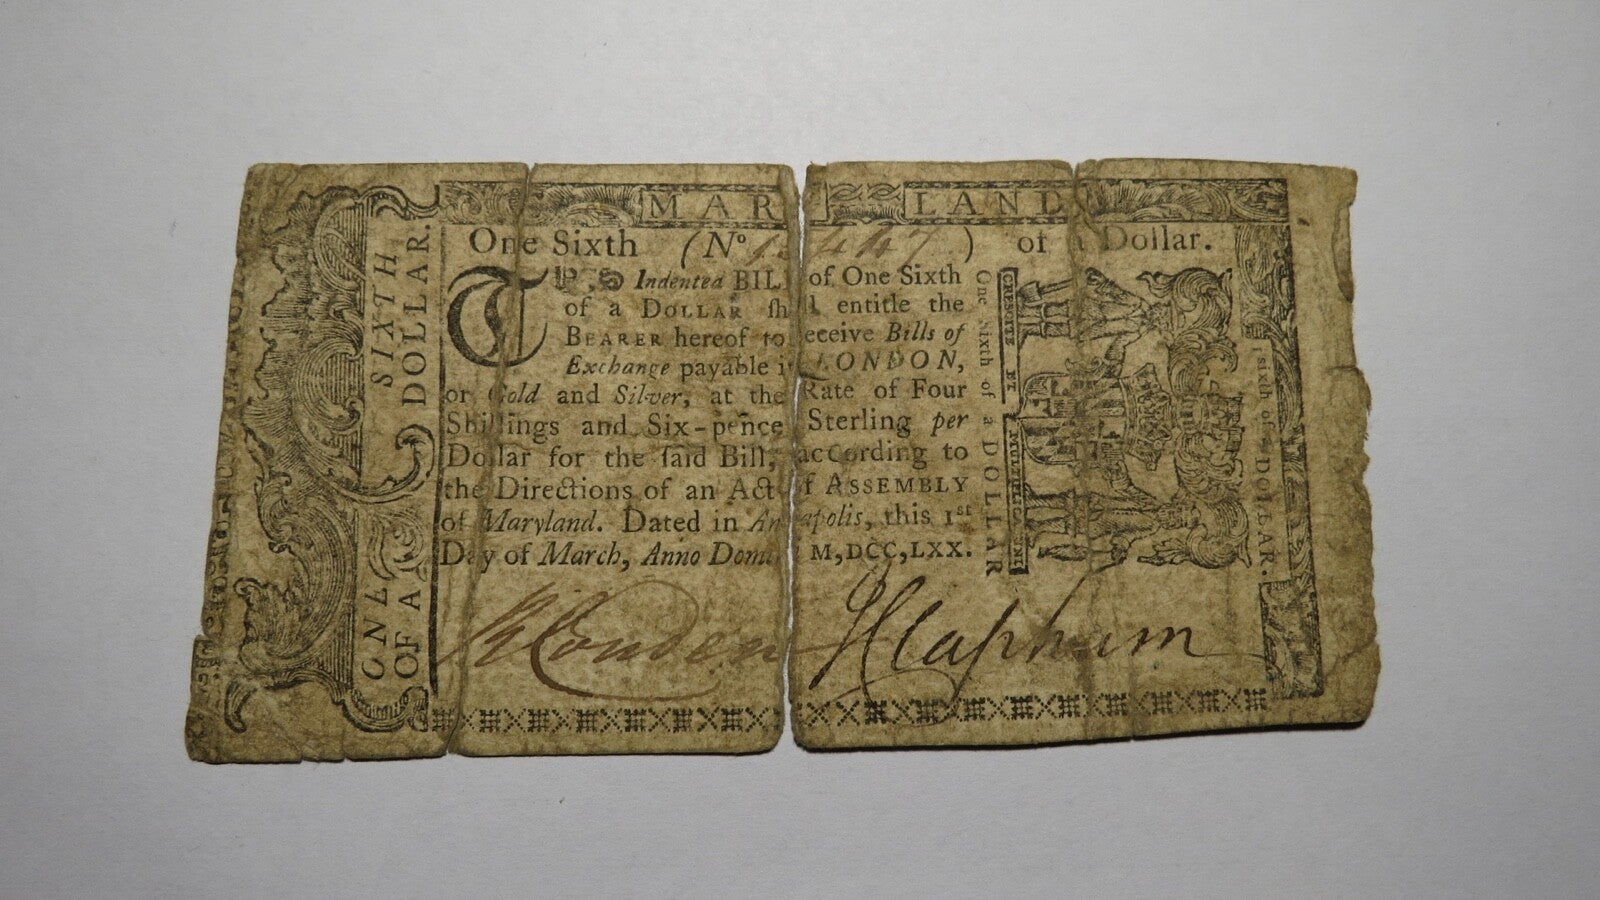 MAR LAND
One Sixth (No ) of a Dollar.
Indented BILL of One Sixth
of a DOLLAR sh l entitle the
BEARER hereof to eceive Bills of
Exchange payable i LONDON,
or Gold and Silver, at the Rate of Four
Shillings and Six-pence Sterling per
Dollar for the ſaid Bill, according to
the Directions of an Act of ASSEMBLY
of Maryland. Dated in An apolis, this 1st
Day of March, Anno Domi M,DCC,LXX.
R Couden J Clapham
ONE SIXTH
OF A DOLLAR.
One sixth of a DOLLAR
CRESCITE ET MULTIPLICAMINI
1 sixth of a DOLLAR.